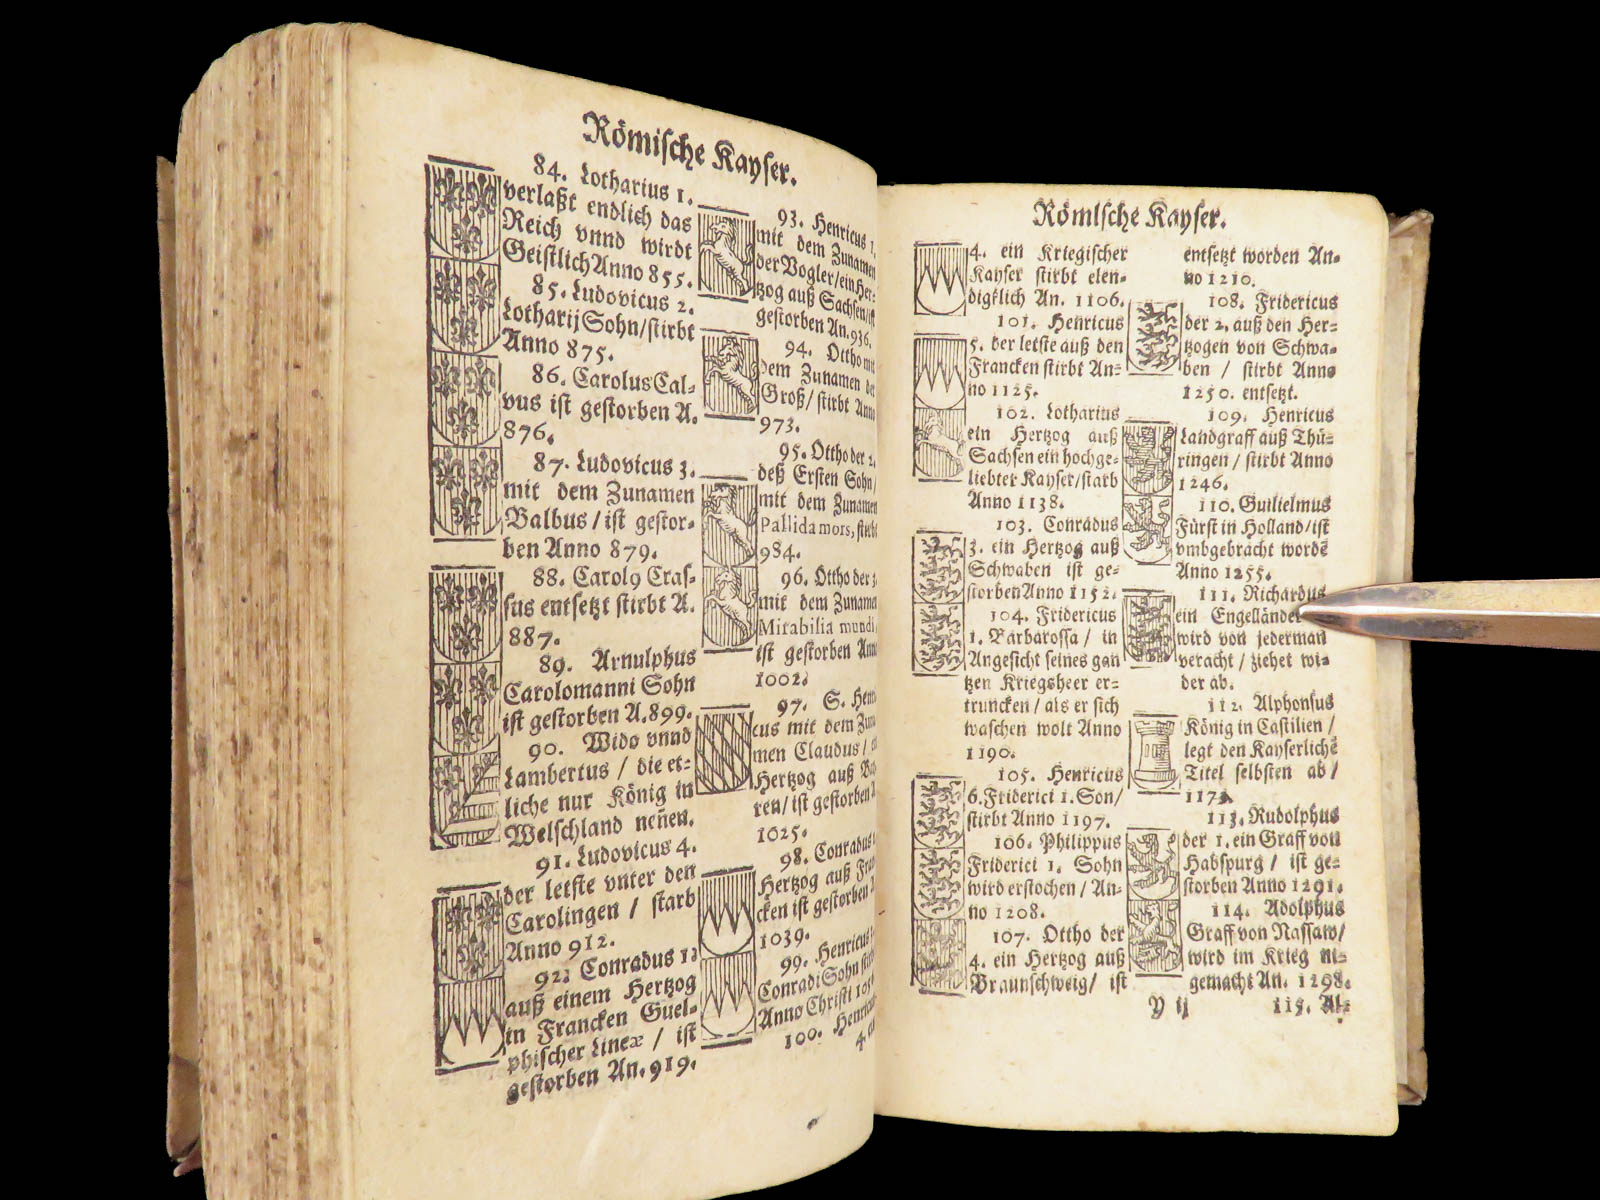 Römische Kayser.
84. Lotharius 1.
verlaßt endlich das
Reich vnnd wirdt
Geistlich Anno 855.
85. Ludovicus 2.
Lotharij Sohn/stirbt
Anno 875.
86. Carolus Cal-
vus ist gestorben A.
876.
87. Ludovicus 3.
mit dem Zunamen
Balbus / ist gestor-
ben Anno 879.
88. Carol9 Cras-
sus entsetzt stirbt A.
887.
89. Arnulphus
Carolomanni Sohn
ist gestorben A.899.
90. Wido vnnd
Lambertus / die et-
liche nur König in
Welschland neñen.
91. Ludovicus 4.
der letste vnter den
Carolingen / starb
Anno 912.
92. Conradus 1.
auß einem Hertzog
in Francken Guel-
phischer Lineæ / ist
gestorben An. 919.
93. Henricus 1.
mit dem Zunamen
der Vogler/ein Her-
tzog auß Sachsen/ist
gestorben An. 936.
94. Ottho mit
dem Zunamen der
Groß/ stirbt Anno
973.
95. Ottho der 2.
deß Ersten Sohn/
mit dem Zunamen
Pallida mors, stirbt
984.
96. Ottho der 3.
mit dem Zunamen
Mirabilia mundi,
ist gestorben Anno
1002.
97. S. Henri-
cus mit dem Zuna-
men Claudus /
Hertzog auß
ren/ ist gestorben
1025.
98. Conradus
Hertzog auß Fran-
cken ist gestorben
1039.
99. Henricus
Conradi Sohn
Anno Christi
100. Henricus
Römische Kayser.
4. ein Kriegischer
Kayser stirbt elen-
digklich An. 1106.
101. Henricus
5. der letste auß den
Francken stirbt An-
no 1125.
102. Lotharius
ein Hertzog auß
Sachsen ein hochge-
liebter Kayser/starb
Anno 1138.
103. Conradus
3. ein Hertzog auß
Schwaben ist ge-
storben Anno 1152.
104. Fridericus
1. Barbarossa / in
Angesicht seines gan
tzen Kriegsheer er-
truncken / als er sich
waschen wolt Anno
1190.
105. Henricus
6. Friderici 1. Son/
stirbt Anno 1197.
106. Philippus
Friderici 1. Sohn
wird erstochen / An-
no 1208.
107. Ottho der
4. ein Hertzog auß
Braunschweig/ ist
entsetzt worden An-
no 1210.
108. Fridericus
der 2. auß den Her-
tzogen von Schwa-
ben / stirbt Anno
1250. entsetzt.
109. Henricus
Landgraff auß Thü-
ringen / stirbt Anno
1246.
110. Guilielmus
Fürst in Holland/ist
vmbgebracht wordē
Anno 1255.
111. Richardus
ein Engelländer
wird von jederman
veracht / ziehet wi-
der ab.
112. Alphonsus
König in Castilien /
legt den Kayserlichē
Titel selbsten ab /
1173.
113. Rudolphus
der 1. ein Graff von
Habspurg / ist ge-
storben Anno 1291.
114. Adolphus
Graff von Nassaw/
wird im Krieg ni-
gemacht An. 1298.
Y ij
115. Al-